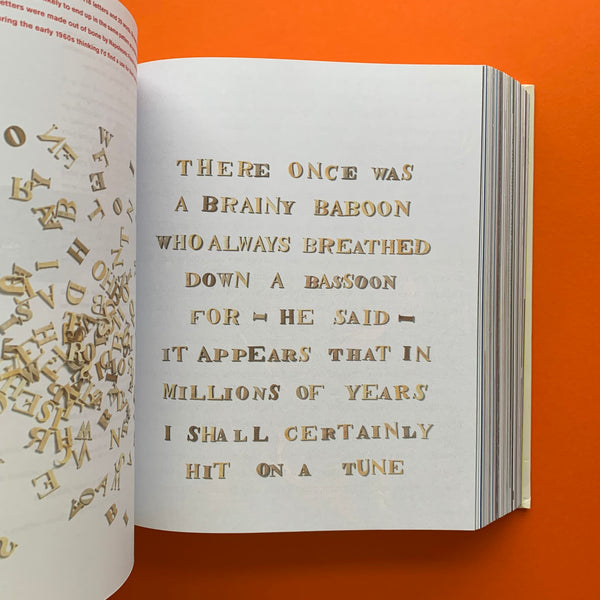 letters and
likely to end up in the same
letters were made out of bone by Napoleonic
during the early 1960s thinking I'd find a use for
THERE ONCE WAS
A BRAINY BABOON
WHO ALWAYS BREATHED
DOWN A BASSOON
FOR – HE SAID –
IT APPEARS THAT IN
MILLIONS OF YEARS
I SHALL CERTAINLY
HIT ON A TUNE